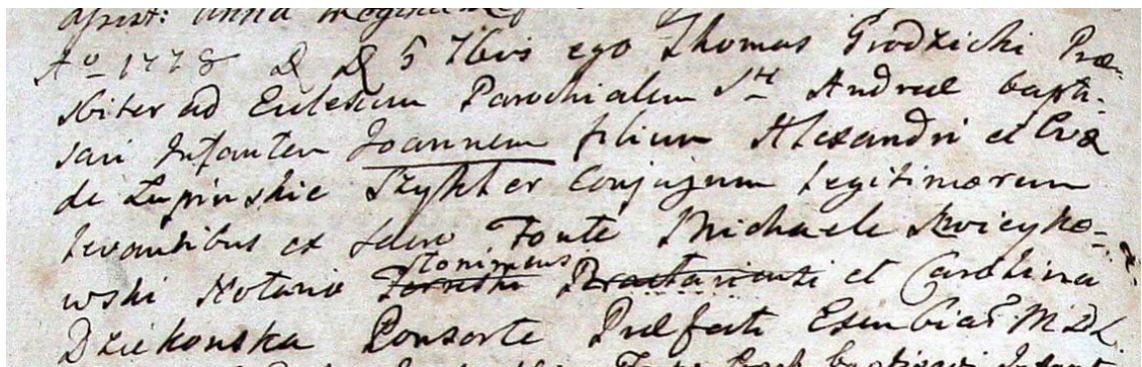 Anna
Ao 1778 D D 5 7bris ego Thomas Grodzicki Præ-
sbiter ad Eclesiam Parochialem Sti Andreæ bapti-
savi Infantem Joannem filium Alexandri et Evæ
de Lupinskie Szykter Conjugum legitimorum
levantibus ex sacro Fonte Michaele Kwicyko-
wski Notario Slonimens et Carolina
Dziekonska Consorte Præfecti M.D.L.
baptisavi Infant